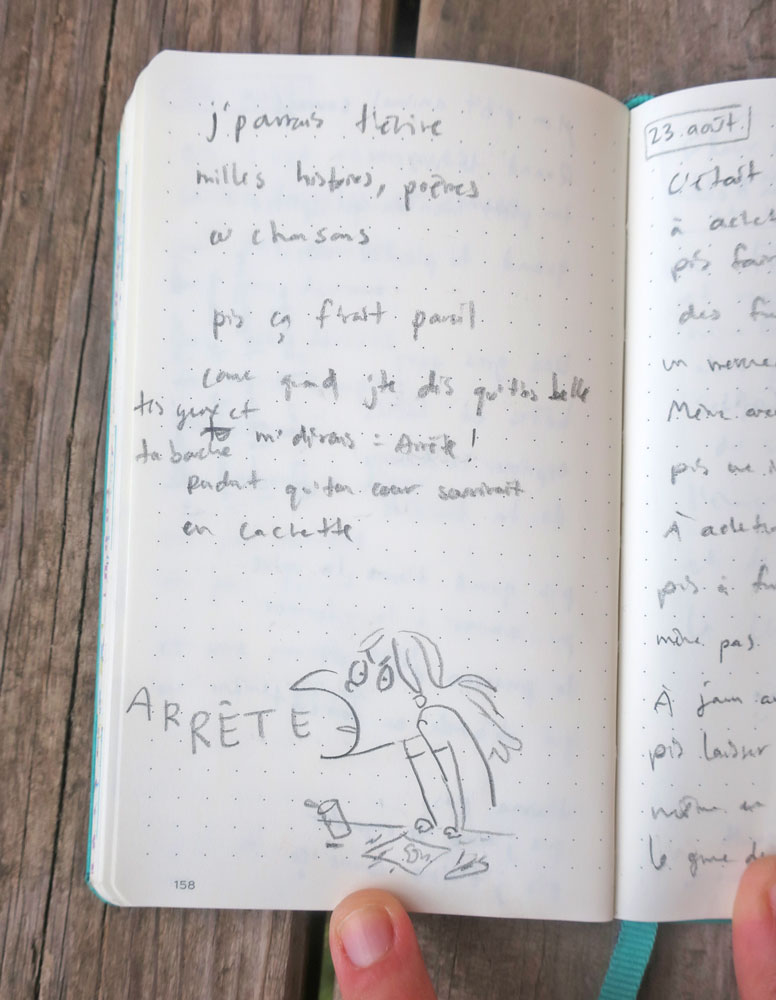 j'pourrais t'écrire
milles histoires, poèmes
et chansons
pis ça f'rait pareil
comme quand j'te dis qu't'es belle
tes yeux et
ta bouche
m'dirais : Arrête !
pendant qu'ton coeur sourirait
en cachette
ARRÊTE
158
23. août.
C'était
à achet
pis fair
des fu
un morce
Même ave
pis me
À achete
pis à fu
même pas
À jam a
pis laisser
même en
le gme de